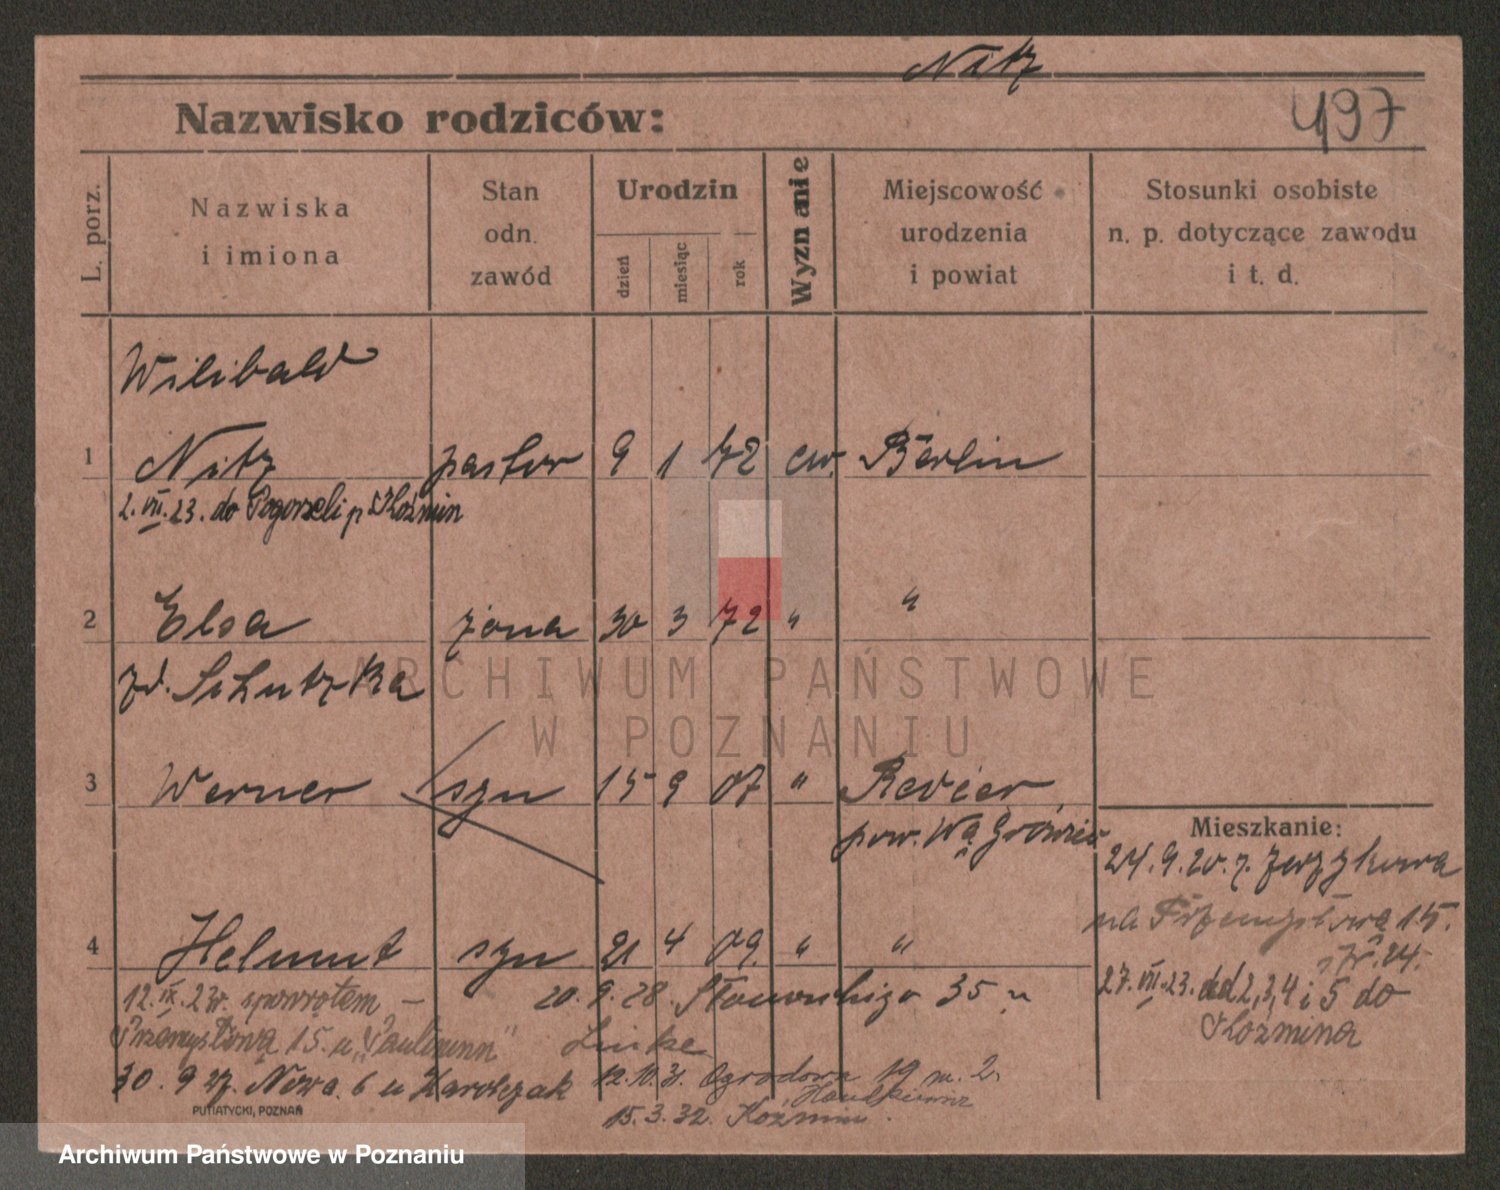 Nitz
Nazwisko rodziców:
497
L. porz.
Nazwiska
i imiona
Stan
odn.
zawód
Urodzin
dzień
miesiąc
rok
Wyznanie
Miejscowość
urodzenia
i powiat
Stosunki osobiste
n. p. dotyczące zawodu
i t. d.
Wilibald
1 Nitz pastor 9 1 72 ew. Berlin
2. VII. 23. do Pogorzeli p. Koźmin
2 Elsa żona 30 3 72 " "
zd. Schutzka
3 Werner syn 15 9 07 " Revier
pow. Wągrówiec
Mieszkanie:
24. 9. 20. z Jerzykowa
na Przemysłowa 15.
4 Helmut syn 21 4 09. " "
27. VII. 23. 2, 3, 4 i 5 do
Koźmina
12. IX. 23r. spowrotem –
20. 9. 28. 35 u
Przemysłowa 15. u "Paulinum"
Linke
30. 9 27. Nowa. 6 u Karolczak
12. 10. 31. Ogrodowa 19 m. 2
15. 3. 32. Koźmin.
PUTIATYCKI, POZNAŃ
ARCHIWUM PAŃSTWOWE
W POZNANIU
Archiwum Państwowe w Poznaniu